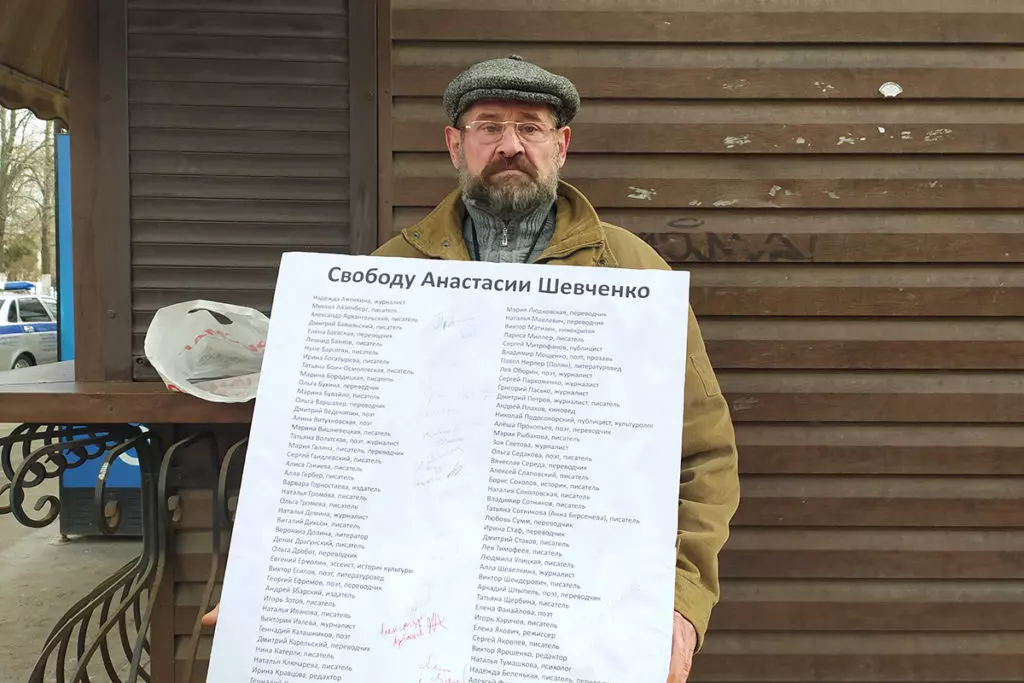 Свободу Анастасии Шевченко
Надежда Ажгихина, журналист
Михаил Айзенберг, писатель
Александр Архангельский, писатель
Дмитрий Бавильский, писатель
Елена Баевская, переводчик
Леонид Бахнов, писатель
Нуне Барсегян, писатель
Ирина Богатырева, писатель
Татьяна Бонч-Осмоловская, писатель
Марина Бородицкая, писатель
Ольга Бухина, переводчик
Марина Бувайло, писатель
Ольга Варшавер, переводчик
Дмитрий Веденяпин, поэт
Алина Витухновская, поэт
Марина Вишневецкая, писатель
Татьяна Вольтская, поэт, журналист
Мария Галина, писатель, переводчик
Сергей Гандлевский, писатель
Алиса Ганиева, писатель
Алла Гербер, писатель
Варвара Горностаева, издатель
Наталья Громова, писатель
Ольга Громова, писатель
Наталья Демина, журналист
Виталий Диксон, писатель
Вероника Долина, литератор
Денис Драгунский, писатель
Ольга Дробот, переводчик
Евгений Ермолин, эссеист, историк культуры
Виктор Есипов, поэт, литературовед
Георгий Ефремов, поэт, переводчик
Андрей Збарский, издатель
Игорь Зотов, писатель
Наталья Иванова, писатель
Виктория Ивлева, журналист
Геннадий Каташников, поэт
Дмитрий Карельский, переводчик
Нина Катерли, писатель
Наталья Ключарева, писатель
Ирина Кравцова, редактор
Мария Людковская, переводчик
Наталья Мавлевич, переводчик
Виктор Матизен, кинокритик
Лариса Миллер, писатель
Сергей Митрофанов, публицист
Владимир Мощенко, поэт, прозаик
Павел Нерлер (Полян), литературовед
Лев Оборин, поэт, журналист
Сергей Пархоменко, журналист
Григорий Пасько, журналист
Дмитрий Петров, журналист, писатель
Андрей Плахов, киновед
Николай Подосокорский, публицист, культуролог
Алёша Прокопьев, поэт, переводчик
Мария Рыбакова, писатель
Зоя Светова, журналист
Ольга Седакова, поэт
Вячеслав Середа, переводчик
Алексей Слаповский, писатель
Борис Соколов, историк, писатель
Наталия Соколовская, писатель
Владимир Сотников, писатель
Татьяна Сотникова (Анна Берсенева), писатель
Любовь Сумм, переводчик
Ирина Стаф, переводчик
Дмитрий Стахов, писатель
Лев Тимофеев, писатель
Людмила Улицкая, писатель
Алла Шевелкина, журналист
Виктор Шендерович, писатель
Аркадий Штыпель, поэт, переводчик
Татьяна Щербина, писатель
Елена Фанайлова, поэт
Игорь Харичев, писатель
Елена Якович, режиссер
Сергей Яковлев, писатель
Виктор Ярошенко, редактор
Наталья Тумашкова, психолог
Надежда Беленькая, писатель,